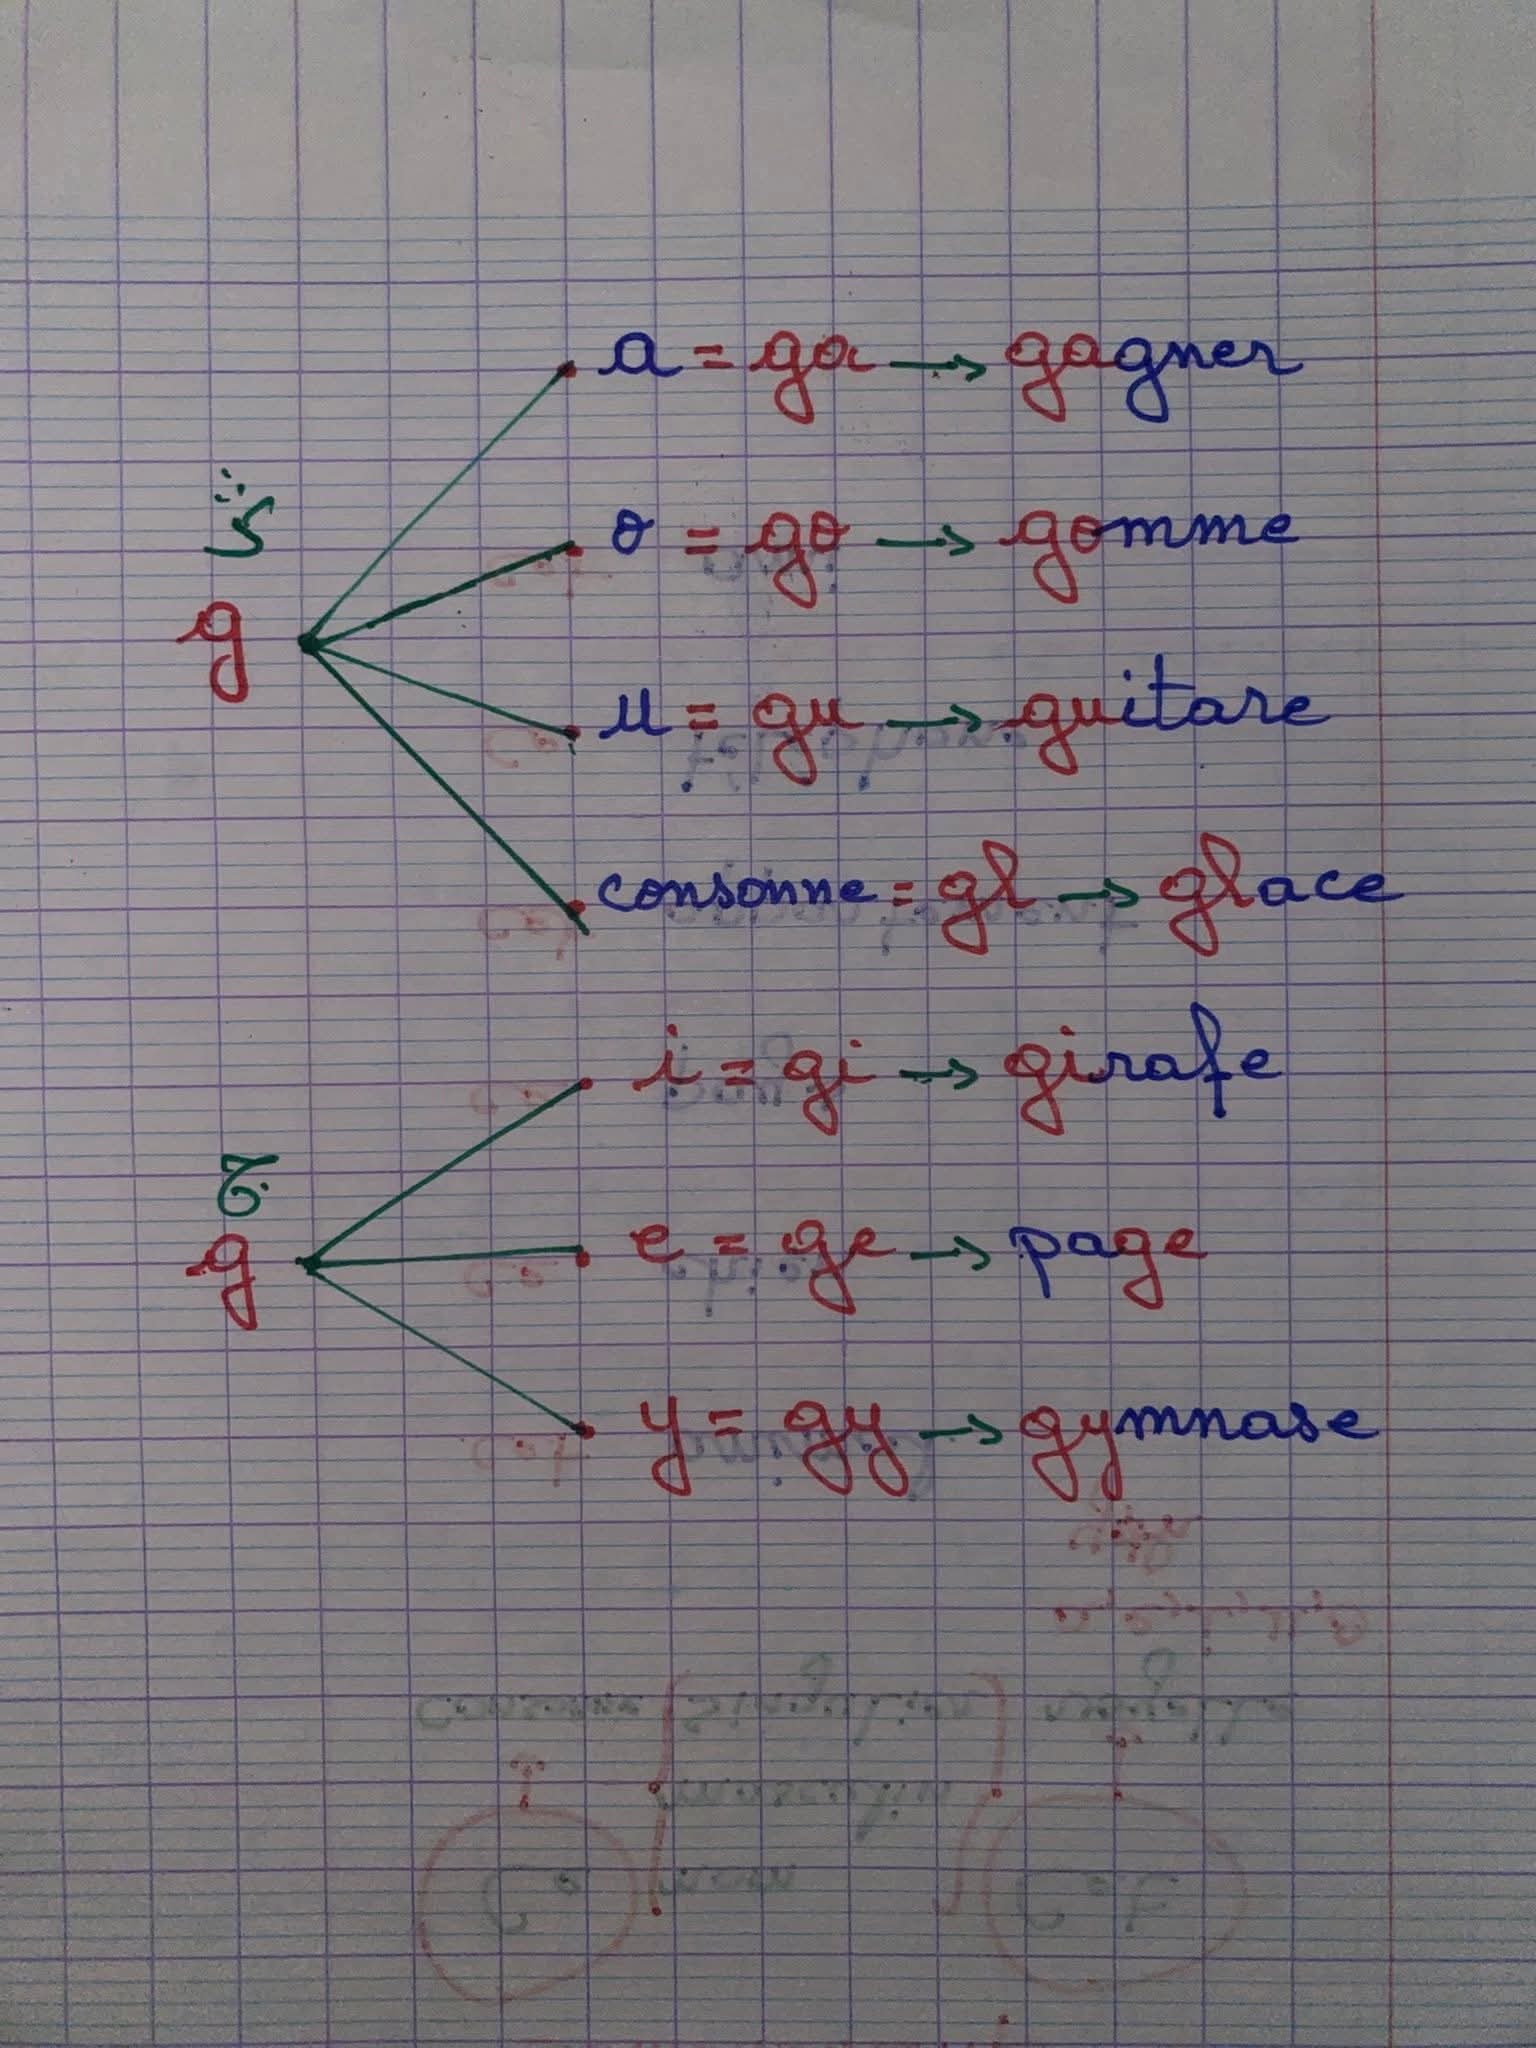 a = ga → gagner
ڭ
o = go → gomme
g
u = gu → guitare
consonne = gl → glace
i = gi → girafe
ج
g
e = ge → page
y = gy → gymnase